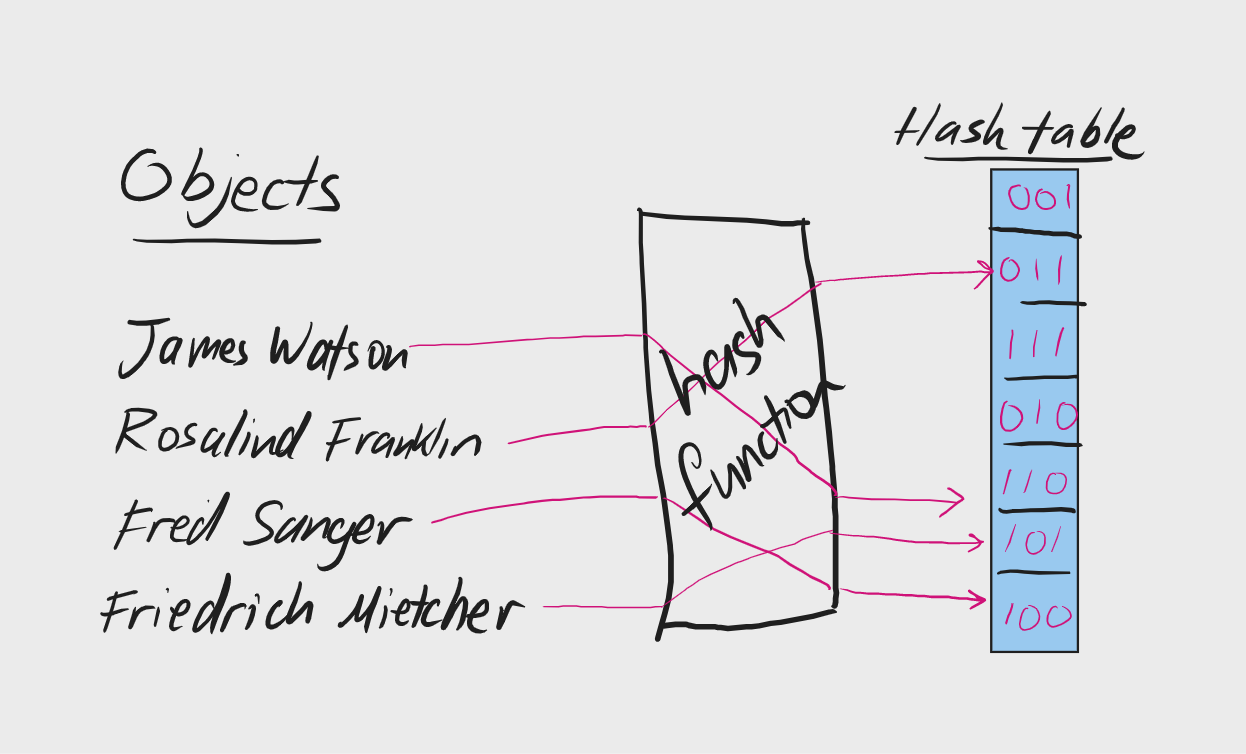 Hash table
Objects
James Watson
Rosalind Franklin
Fred Sanger
Friedrich Mietcher
hash
function
001
011
111
010
110
101
100